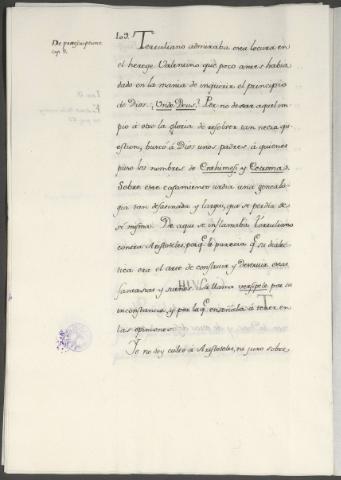 De præscriptione
cap. 7.
103. Tertuliano admiraba esta locura en
el herege Valentino que poco antes habia
dado en la mania de inquirir el principio
de Dios: Unde Deus? Por no dexar aquel im-
pio á otro la gloria de resolver tan necia qu-
estion, buscó á Dios unos padres, á quienes
puso los nombres de Enthimesi y Ectroma.
Sobre este casamiento urdia una genealo-
gia tan desatinada y larga, que se perdia de
si misma. De aqui se inflamaba Tertuliano
contra Aristoteles, porq.e le parecia q.e su dialec-
tica era el arte de construir y destruir estas
fantasias y sueños. La llama versipele por su
inconstancia, y por la q.e enseñaba á tener en
las opiniones.
Yo no doy culto á Aristoteles, ni juro sobre